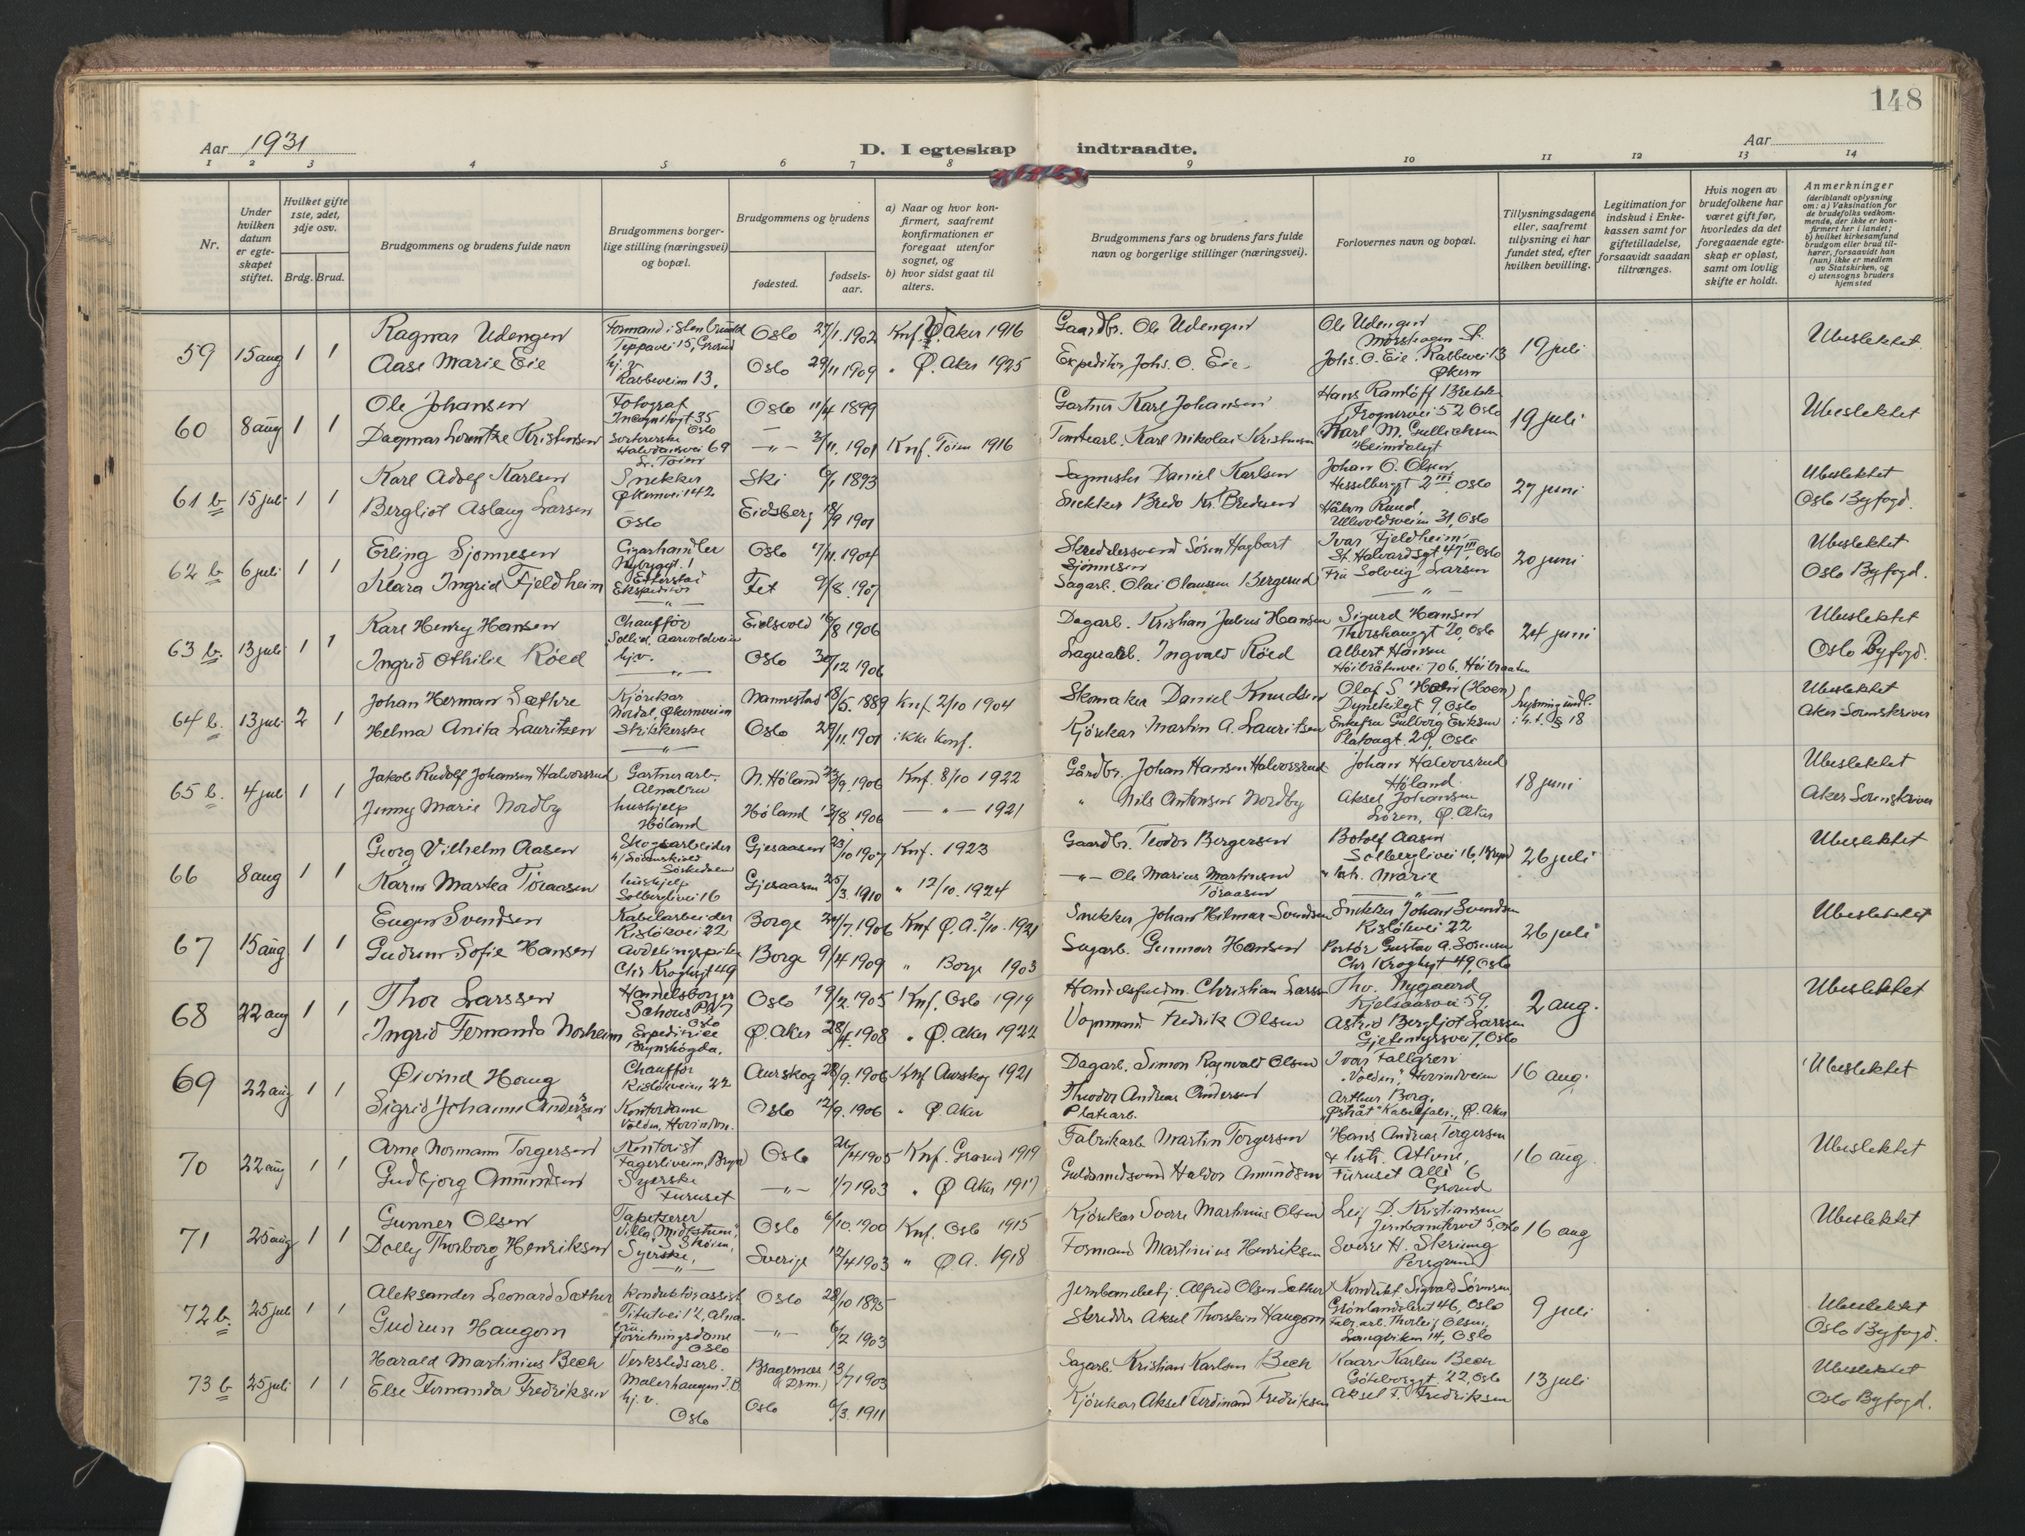 148
Aar 1931
D. Iegteskap indtraadte.
Aar
1 2 3 4 5 6 7 8 9 10 11 12 13 14
Nr.
Under hvilken datum er egteskapet stiftet.
Hvilket gifte 1ste, 2det, 3dje osv.
Brdg. Brud.
Brudgommens og brudens fulde navn
Brudgommens borgerlige stilling (næringsvei) og bopæl.
Brudgommens og brudens
fødested.
fødselsaar.
a) Naar og hvor konfirmert, saafremt konfirmationen er foregaat utenfor sognet, og
b) hvor sidst gaat til alters.
Brudgommens fars og brudens fars fulde navn og borgerlige stillinger (næringsvei).
Forlovernes navn og bopæl.
Tillysningsdagene eller, saafremt tullysning ei har fundet sted, efter hvilken bevilling.
Legitimation for indskud i Enkekassen samt for giftetilladelse, forsaavidt saadan tiltrænges.
Hvis nogen av brudefolkene har været gift før, hvorledes da det foregaaende egteskap er opløst, samt om lovlig skifte er holdt.
Anmerkninger (deriblandt oplysning om: a) Vaksination for de brudefolks vedkommende, der ikke er konfirmert her i landet; b) hvilket kirkesamfund brudgom eller brud tilhører, forsaavidt han (hun) ikke er medlem av Statskirken, og c) utensogns bruders hjemsted
59 15 aug 1 1 Ragnar Udengen Oslo 27/1 1902 Knf. Ø. Aker 1916 Gaardbr. Ole Udengen Ole Udengen 19 juli Ubeslektet
Teppavei 15, Grorud
Aase Marie Eie hj. v. Rabbeveien 13. Oslo 29/11 1909 " Ø. Aker 1925 Expeditør Johs. O. Eie Johs. O. Eie. Rabbevei 13 Økern
60 8 aug 1 1 Ole Johansen Fotograf Oslo 11/4 1899 Gartner Karl Johansen Hans Ramløff Frognervei 52 Oslo 19 juli Ubeslektet
Dagmar Lorentze Kristensen Halvdansvei 69 —"— 3/11 1901 Knf. Tøien 1916 Tomtearb. Karl Nikolai Kristensen Karl M. Gullichsen Heimdalsgt
61 b 15 juli 1 1 Karl Adolf Karlsen Snekker Økernvei 142 Ski 6/1 1893 Sagmester Daniel Karlsen Johan O. Olsen Hesselbergsgt 2 III, Oslo 27 juni Ubeslektet
Bergliot Aslaug Larsen Oslo Eidsberg 18/9 1901 Snekker Bredo Kr. Bredesen Håkon Ruud, Ullevoldsveien 31, Oslo Oslo Byfogd.
62 b 6 juli 1 1 Erling Sjønnesen Cigarhandler Nybyggt. 1 Etterstad Oslo 17/11 1904 Skreddersvend Søren Hagbart Sjønnesen Ivar Fjeldheim St. Halvardsgt 47 III, Oslo 20 juni Ubeslektet
Klara Ingrid Fjeldheim Ekspeditør —"— Fet 9/8 1907 Sagarb. Olai Olaussen Bergerud Fru Solveig Larsen —"— Oslo Byfogd.
63 b. 13 juli 1 1 Karl Henry Hansen Chauffør Sollid, Aarvoldveien Eidsvold 16/8 1906 Dagarb. Kristian Julius Hansen Sigurd Hansen Thorshauggt 20, Oslo 24 juni Ubeslektet
Ingrid Othilie Røed hj.v. —"— Oslo 30/12 1906 Lagerarb. Ingvald Røed Albert Hansen Høibråtenvei 706, Høibraaten Oslo Byfogd.
64 b. 13 juli 2 1 Johan Herman Sæthre Kjørekar Nordal, Økernveien Nannestad 18/5. 1889 Knf. 2/10 1904 Skomaker Daniel Knudsen Olaf S. Holm (Hoen) Dyneteilgt 9, Oslo Lysning undl. Ubeslektet
Helma Anita Lauritzen Strikkerske —"— Oslo 29/11 1901 ikke konf. Kjørekar Martin A. Lauritsen Enkefru Gulborg Eriksen Platougt. 29, Oslo i h. t. § 18 Aker Sorenskriver
65 b. 4 juli 1 1 Jakob Rudolf Johansen Halvorsrud Gartnerarb. Alnabru N. Høland 23/9. 1906 Knf 8/10 1922 Gårdbr. Johan Hansen Halvorsrud Johan Halvorsrud Høland 18 juni Ubeslektet
Jenny Marie Nordby hushjelp Høland Høland 13/8 1906 —"— 1921 " Nils Antonsen Nordby Aksel Johansen Løren, Ø. Aker Aker Sorenskriver
66 8 aug 1 1 Georg Vilhelm Aasen Skogsarbeider Gjesaasen 23/10 1907 Knf. 1923 Gaardbr. Teodor Bergersen Botolf Aasen Solberglivei 16, Bryn 26 juli Ubeslektet
Karen Martea Toraasen hushjelp Solberglivei 16 Gjesaasen 25/3. 1910 " 12/10. 1924 —"— Ole Marius Martinsen Toraasen Marie —"—
67 15 aug 1 1 Eugen Svendsen Kabelarbeider Risløkvei 22 Borge 24/7. 1906 Knf Ø. A. 2/10. 1921 Snekker Johan Hilmar Svendsen Snekker Johan Svendsen Risløkvei 22 26 juli Ubeslektet
Gudrun Sofie Hansen Avdelingspike Chr Kroghsgt 49 Borge 9/4 1909 " Borge 1903 Sagarb. Gunnar Hansen Portør Gustav A. Sørensen Chr Kroghsgt 49, Oslo
68 22 aug 1 1 Thor Larssen Handelsborger Schous Pl 7 Oslo Oslo 19/2. 1905 Knf. Oslo 1919 Handelsfuldm. Christian Larssen Thv. Nygaard Kjelsaasvei 59, 2 aug. Ubeslektet
Ingrid Fernanda Norheim Expeditrice Brynshøgda. Ø. Aker 28/4. 1908 " Ø. Aker 1922 Vognmand Fredrik Olsen Astrid Bergljot Larssen Gjetemyrsvei 7, Oslo
69 22 aug 1 1 Øivind Haug Chauffør Risløkveien 22 Aurskog 28/9. 1906 Knf Aurskog 1921 Dagarb. Simon Ragnvald Olsen Ivar Fallgren "Volden", Hovindveien 16 aug. Ubeslektet
Sigrid Johanne Andersen Kontordame Volden, Hovindvn. Oslo 12/9. 1906 " Ø. Aker Theodor Andreas Andersen Platearb. Arthur Borg. "Østråt" Kabelfabr., Ø. Aker
70 22 aug 1 1 Arne Normann Torgersen Kontorist Fagerliveien, Bryn Oslo 26/4 1905 Knf. Grorud 1919 Fabrikarb Martin Torgersen Hans Andreas Torgersen & hstr. Athene, 16 aug. Ubeslektet
Gudbjorg Amundsen Syerske Furuset —"— 1/7 1903 " Ø Aker 1917 Guldsmedsvend Haldor Amundsen Furuset Allé 6 Grorud
71 25 aug 1 1 Gunner Olsen Tapetserer Villa "Midtstuen", Oslo 6/10. 1900 Knf. Oslo 1915 Kjørekar Sverre Martinius Olsen Leif D. Kristiansen Jernbanetorvet 5, Oslo 16 aug Ubeslektet
Dolly Thorborg Henriksen Syerske, —"— Sverige 12/4 1903 " Ø. A. 1918 Formand Martinius Henriksen Sverre H. Skriung Porsgrund
72 b. 25 juli 1 1 Aleksander Leonard Sæther Konduktørassist Tittutvei 12, Alnabru. Oslo 28/10 1895 Jernbanebetj. Alfred Olsen Sæther Kondukt. Sigvald Sørensen Grønlandsleret 46, Oslo 9 juli Ubeslektet
Gudrun Haugom forretningsdame Oslo —"— 6/2 1903 Skredder Aksel Thorstein Haugom Fabr. arb. Thorleif Olsen, Langviken 14, Oslo Oslo Byfogd.
73 b 25 juli 1 1 Harald Martinius Bech Verkstedsarb. Malerhaugen Bragernæs (Drm.) 13/7 1903 Sagarb. Kristian Karlsen Bech Kaare Karlsen Bech Göteborggt. 22, Oslo 13 juli Ubeslektet
Else Fernanda Fredriksen hj. v. Oslo Oslo 6/3. 1911 Kjørekar Aksel Ferdinand Fredriksen Aksel F. Fredriksen Oslo Byfogd.